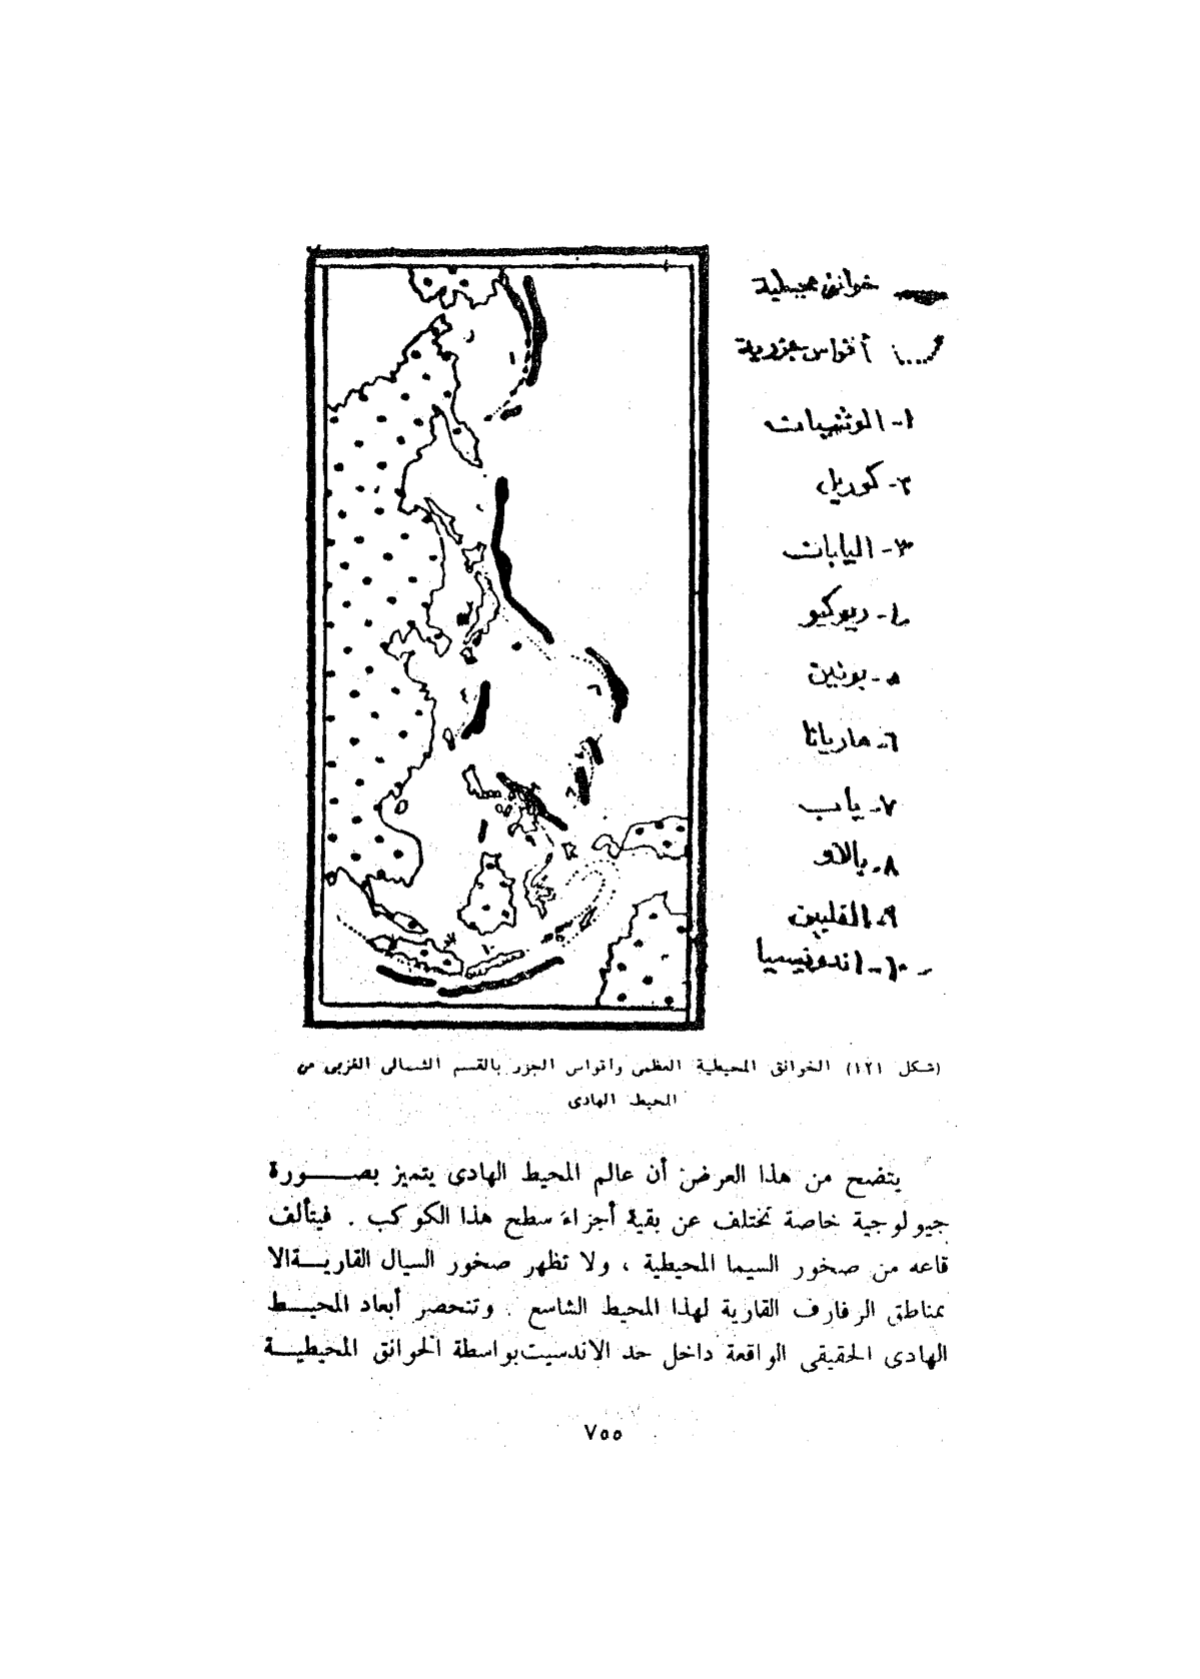 خوانق محيطية
أقواس جزرية
١- الوثشيات
٢- كوريل
٣- اليابات
٤- ريوكيو
٥- بونين
٦- ماريانا
٧- ياب
٨- بالاو
٩- الفلبين
١٠- اندونيسيا
(شكل ١٢١) الخوانق المحيطية العظمى واقواس الجزر بالقسم الشمالى الغربى من
المحيط الهادى
يتضح من هذا العرض أن عالم المحيط الهادى يتميز بصـــورة
جيولوجية خاصة تختلف عن بقية أجزاء سطح هذا الكوكب . فيتألف
قاعه من صخور السيما المحيطية ، ولا تظهر صخور السيال القاريـة الا
بمناطق الرفارف القارية لهذا المحيط الشاسع . وتنحصر أبعاد المحيـط
الهادى الحقيقى الواقعة داخل حد الاندسيت بواسطة الخوانق المحيطيـة
٧٥٥